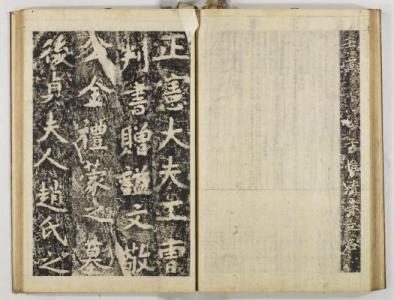 正憲大夫工曹
判書贈謚文敬
公金禮蒙之墓
後貞夫人趙氏之